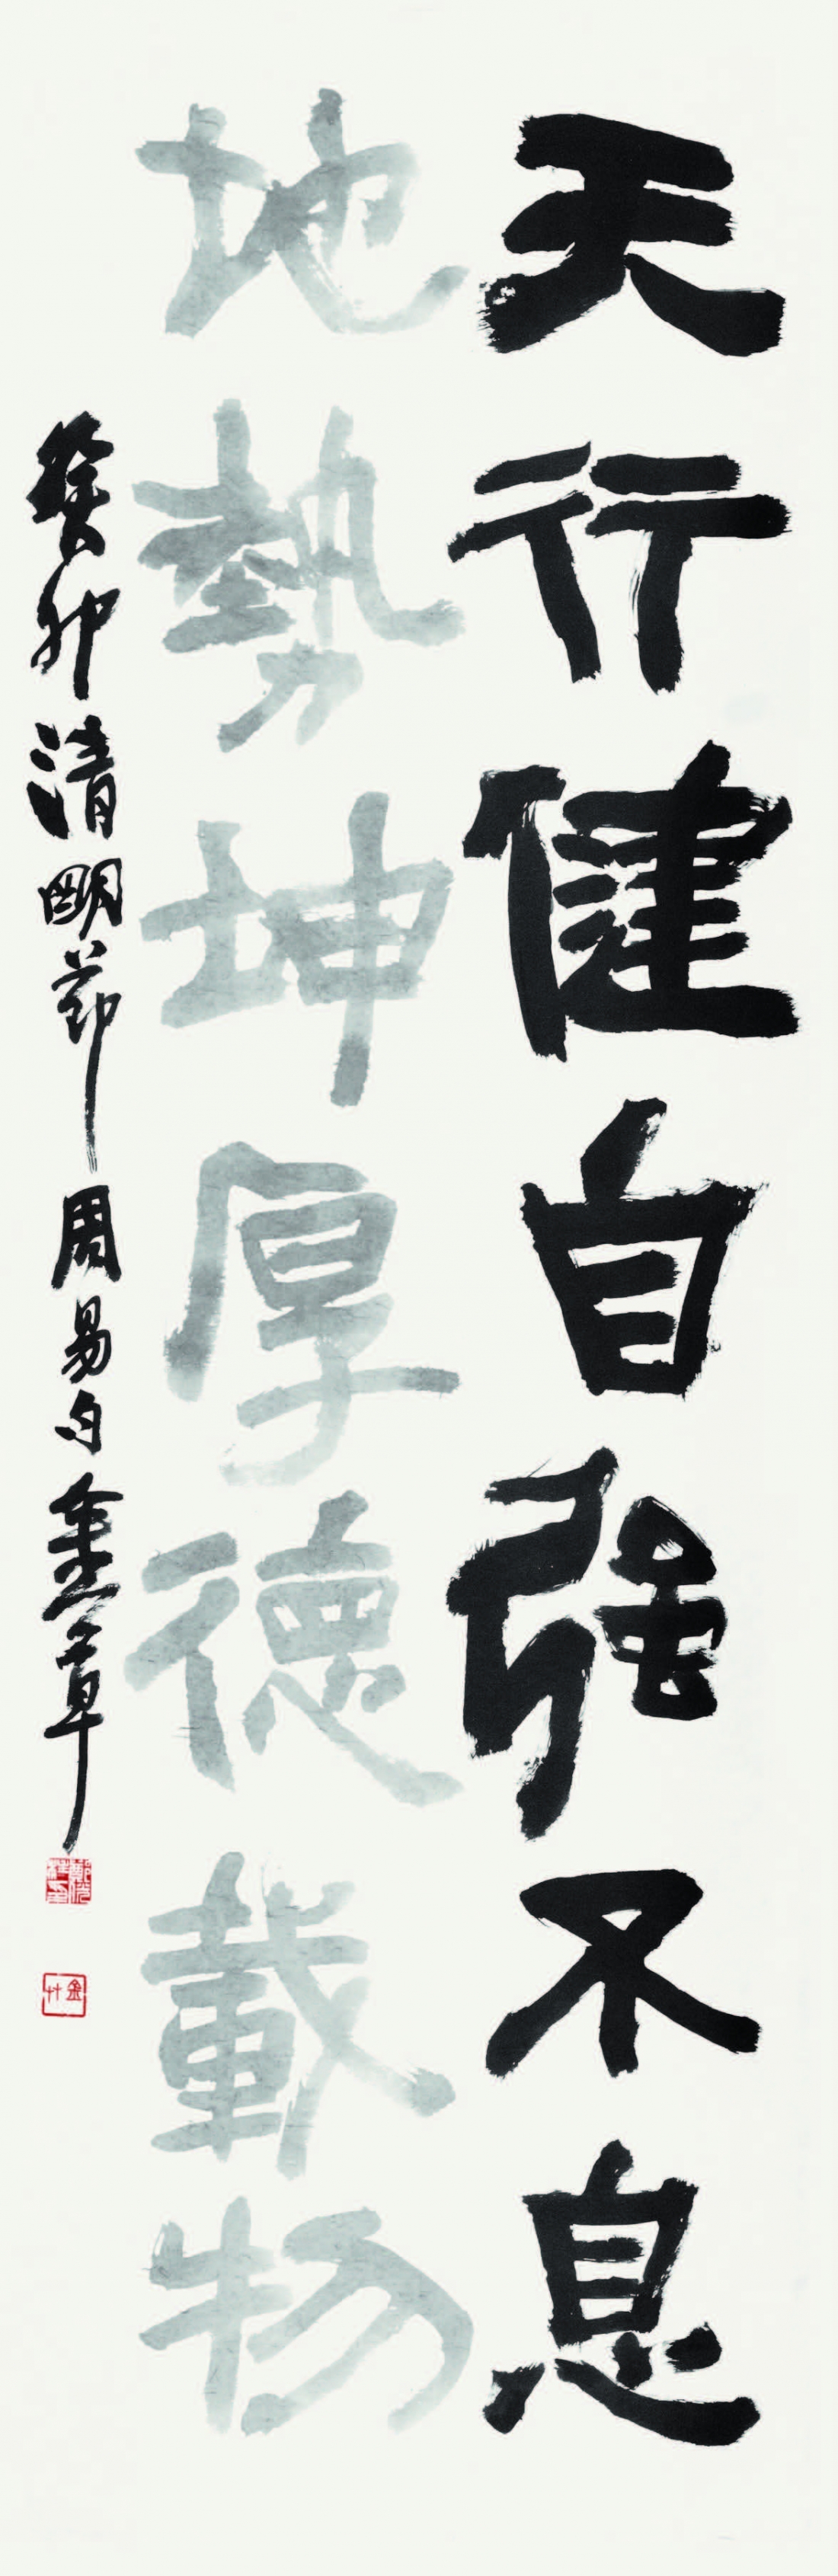 天行健自强不息
地勢坤厚德載物
癸卯清明節周易句金草
金廾